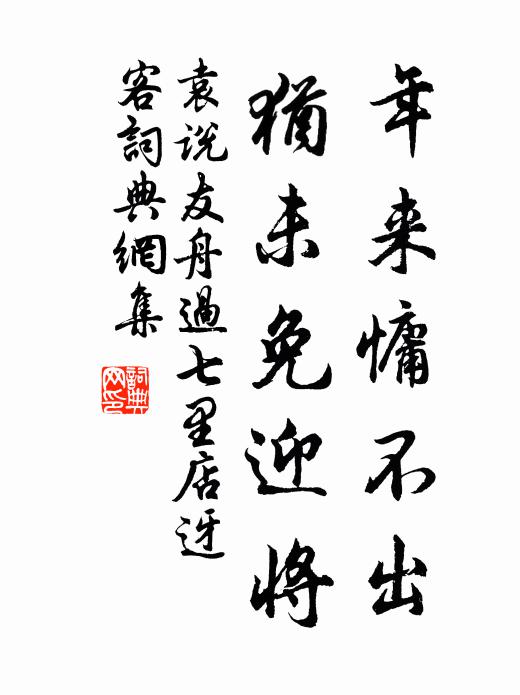 年来慵不出
猶未免迎將
袁説友舟過七里店迓
客詞典網集
詞典
网印